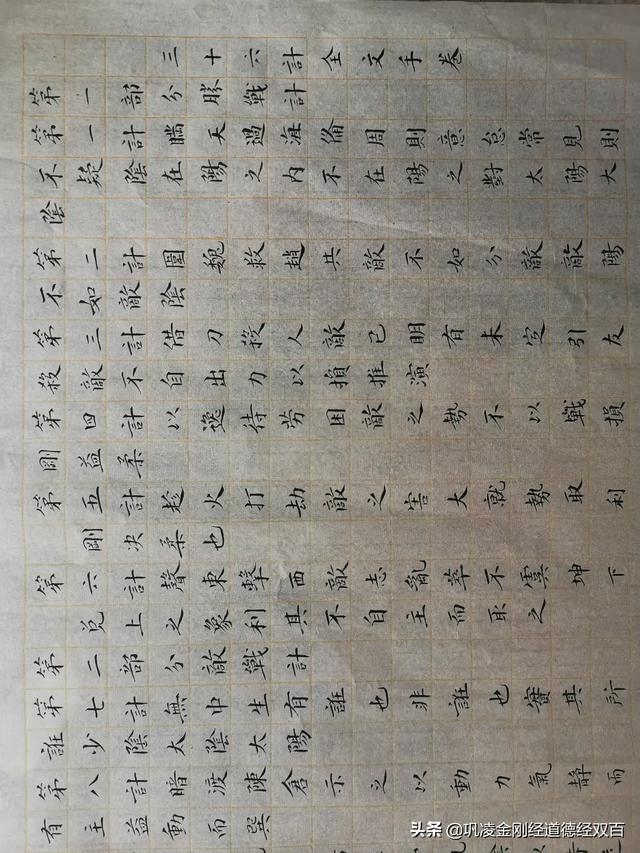 三十六計全文手卷
第一部分勝戰計
第一計瞞天過海備周則意怠常見則
不疑陰在陽之內不在陽之對太陽大
陰
第二計圍魏救趙共敵不如分敵敵陽
不如敵陰
第三計借刀殺人敵已明有未定引友
殺敵不自出力以損推演
第四計以逸待勞困敵之勢不以戰損
剛益柔
第五計趁火打劫敵之害大就勢取利
剛決柔也
第六計聲東擊西敵志亂萃不虞坤下
兌上之象利其不自主而取之
第二部分敵戰計
第七計無中生有誑也非誑也實其所
誑少陰太陰太陽
第八計暗渡陳倉示之以動力氣靜而
有主益動而巽
头条 @巩凌金刚经道德经双百